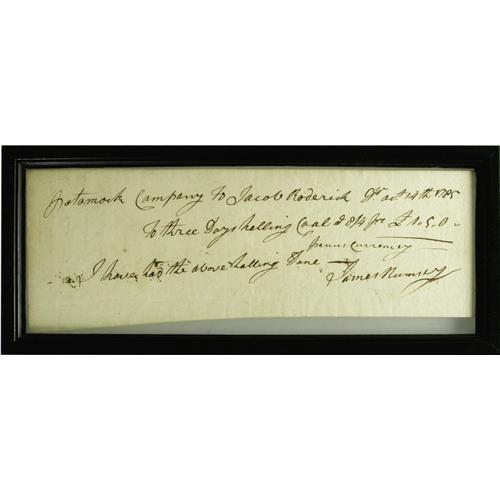 Potomock Company To Jacob Roderick Dr Oct 14th 1785
To three Days halling Coal @ 8/4 pr £ 1.5.0
penns Currencey
I have had the above halling Done
James Rumsey